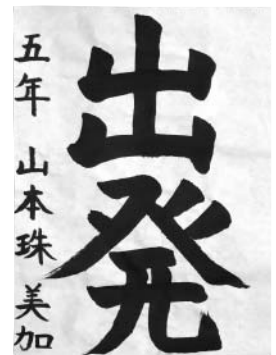 出発
五年 山本珠美加